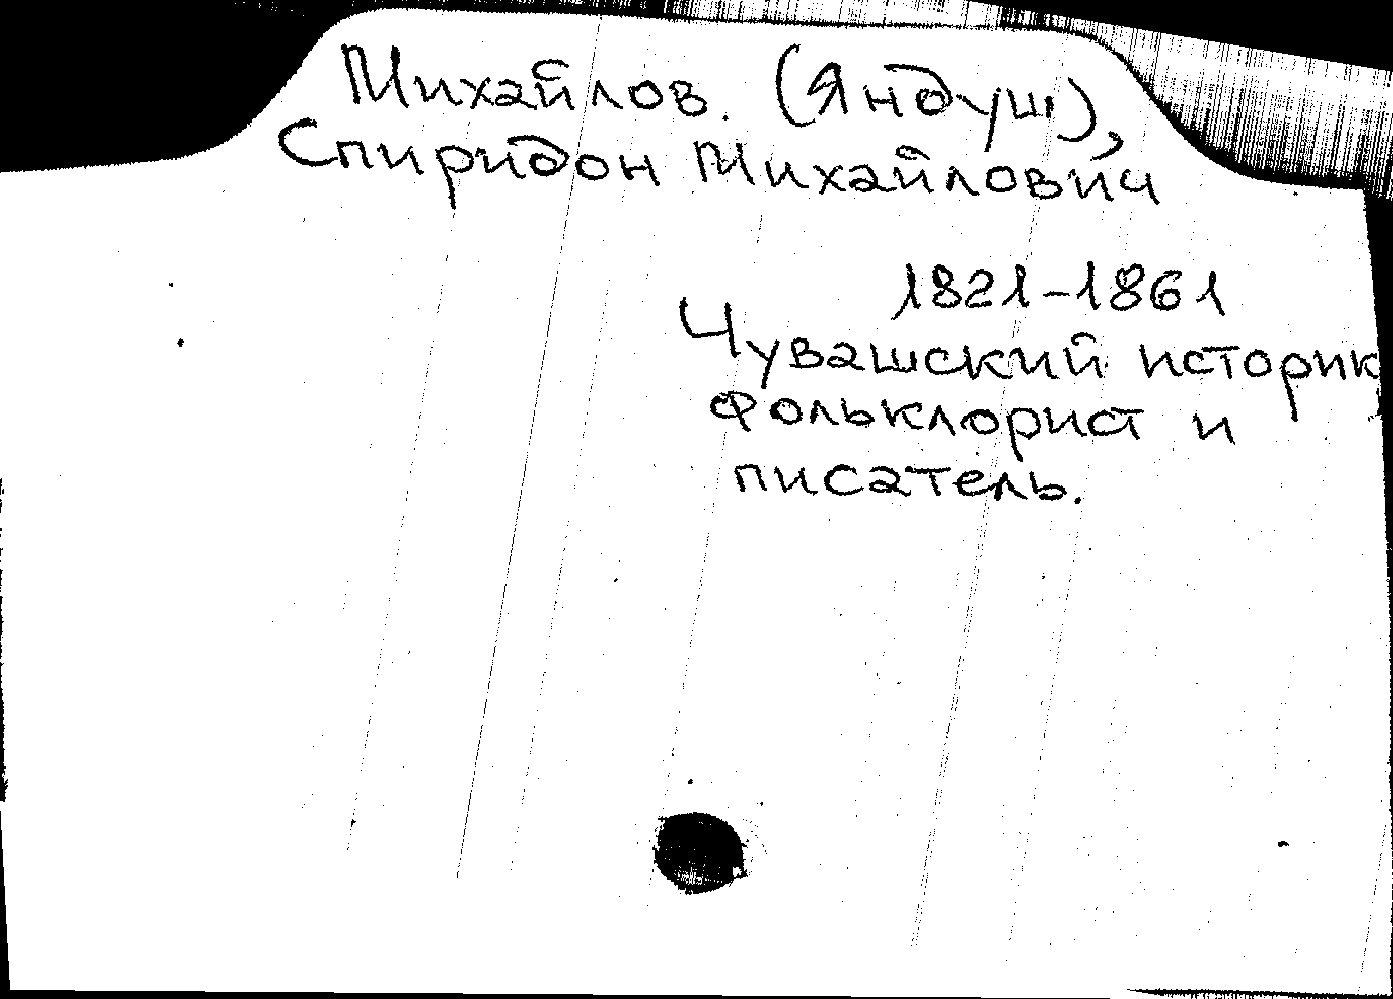 Михайлов. (Яндуш),
Спиридон Михайлович
1821-1861
Чувашский историк
фольклорист и
писатель.